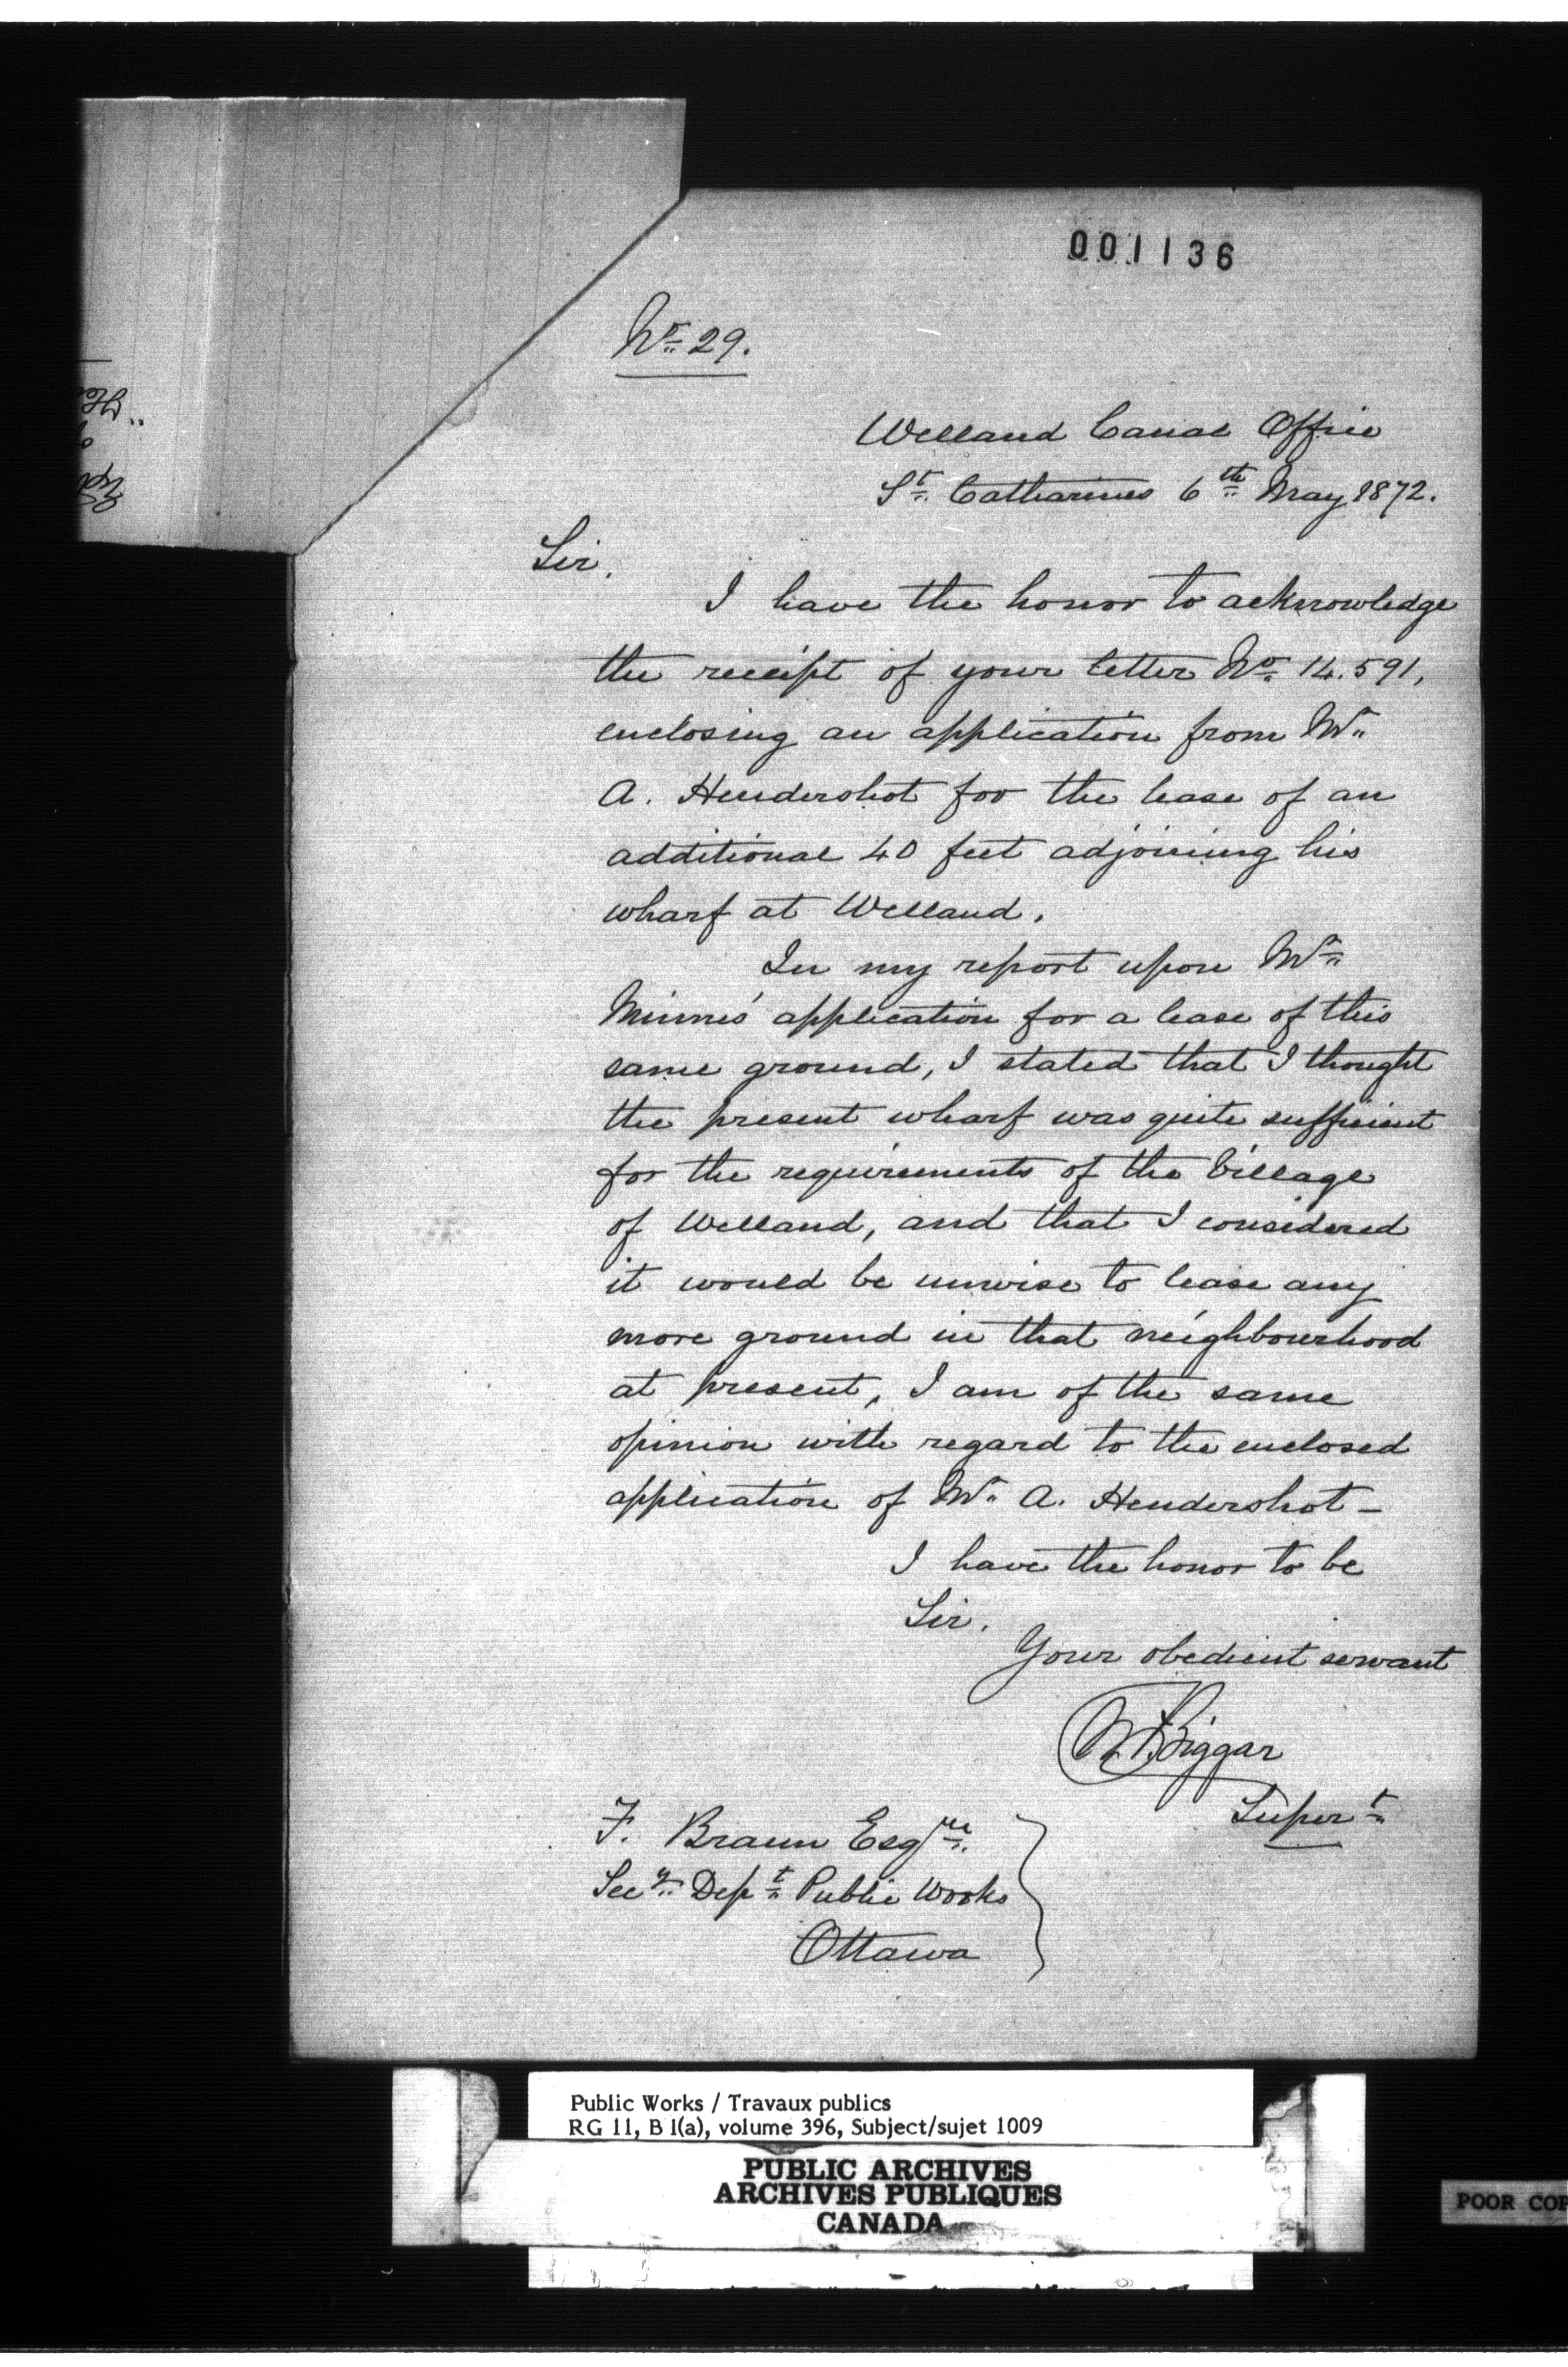 001136
No 29.
Welland Canal Office
St. Catharines 6th May 1872.
Sir,
I have the honor to acknowledge
the receipt of your letter No 14.591,
enclosing an application from Mr
A. Hendershot for the lease of an
additional 40 feet adjoining his
wharf at Welland.
In my report upon Mr
application for a lease of this
same ground, I stated that I thought
the present wharf was quite sufficient
for the requirements of the Village
of Welland, and that I considered
it would be unwise to lease any
more ground in that neighbourhood
at present, I am of the same
opinion with regard to the enclosed
application of Mr A. Hendershot –
I have the honor to be
Sir.
Your obedient servant
Biggar
Supert
F. Braun Esqre.
Secy. Dept Public Works
Ottawa
Public Works / Travaux publics
RG 11, B 1(a), volume 396, Subject/sujet 1009
PUBLIC ARCHIVES
ARCHIVES PUBLIQUES
CANADA
POOR COP